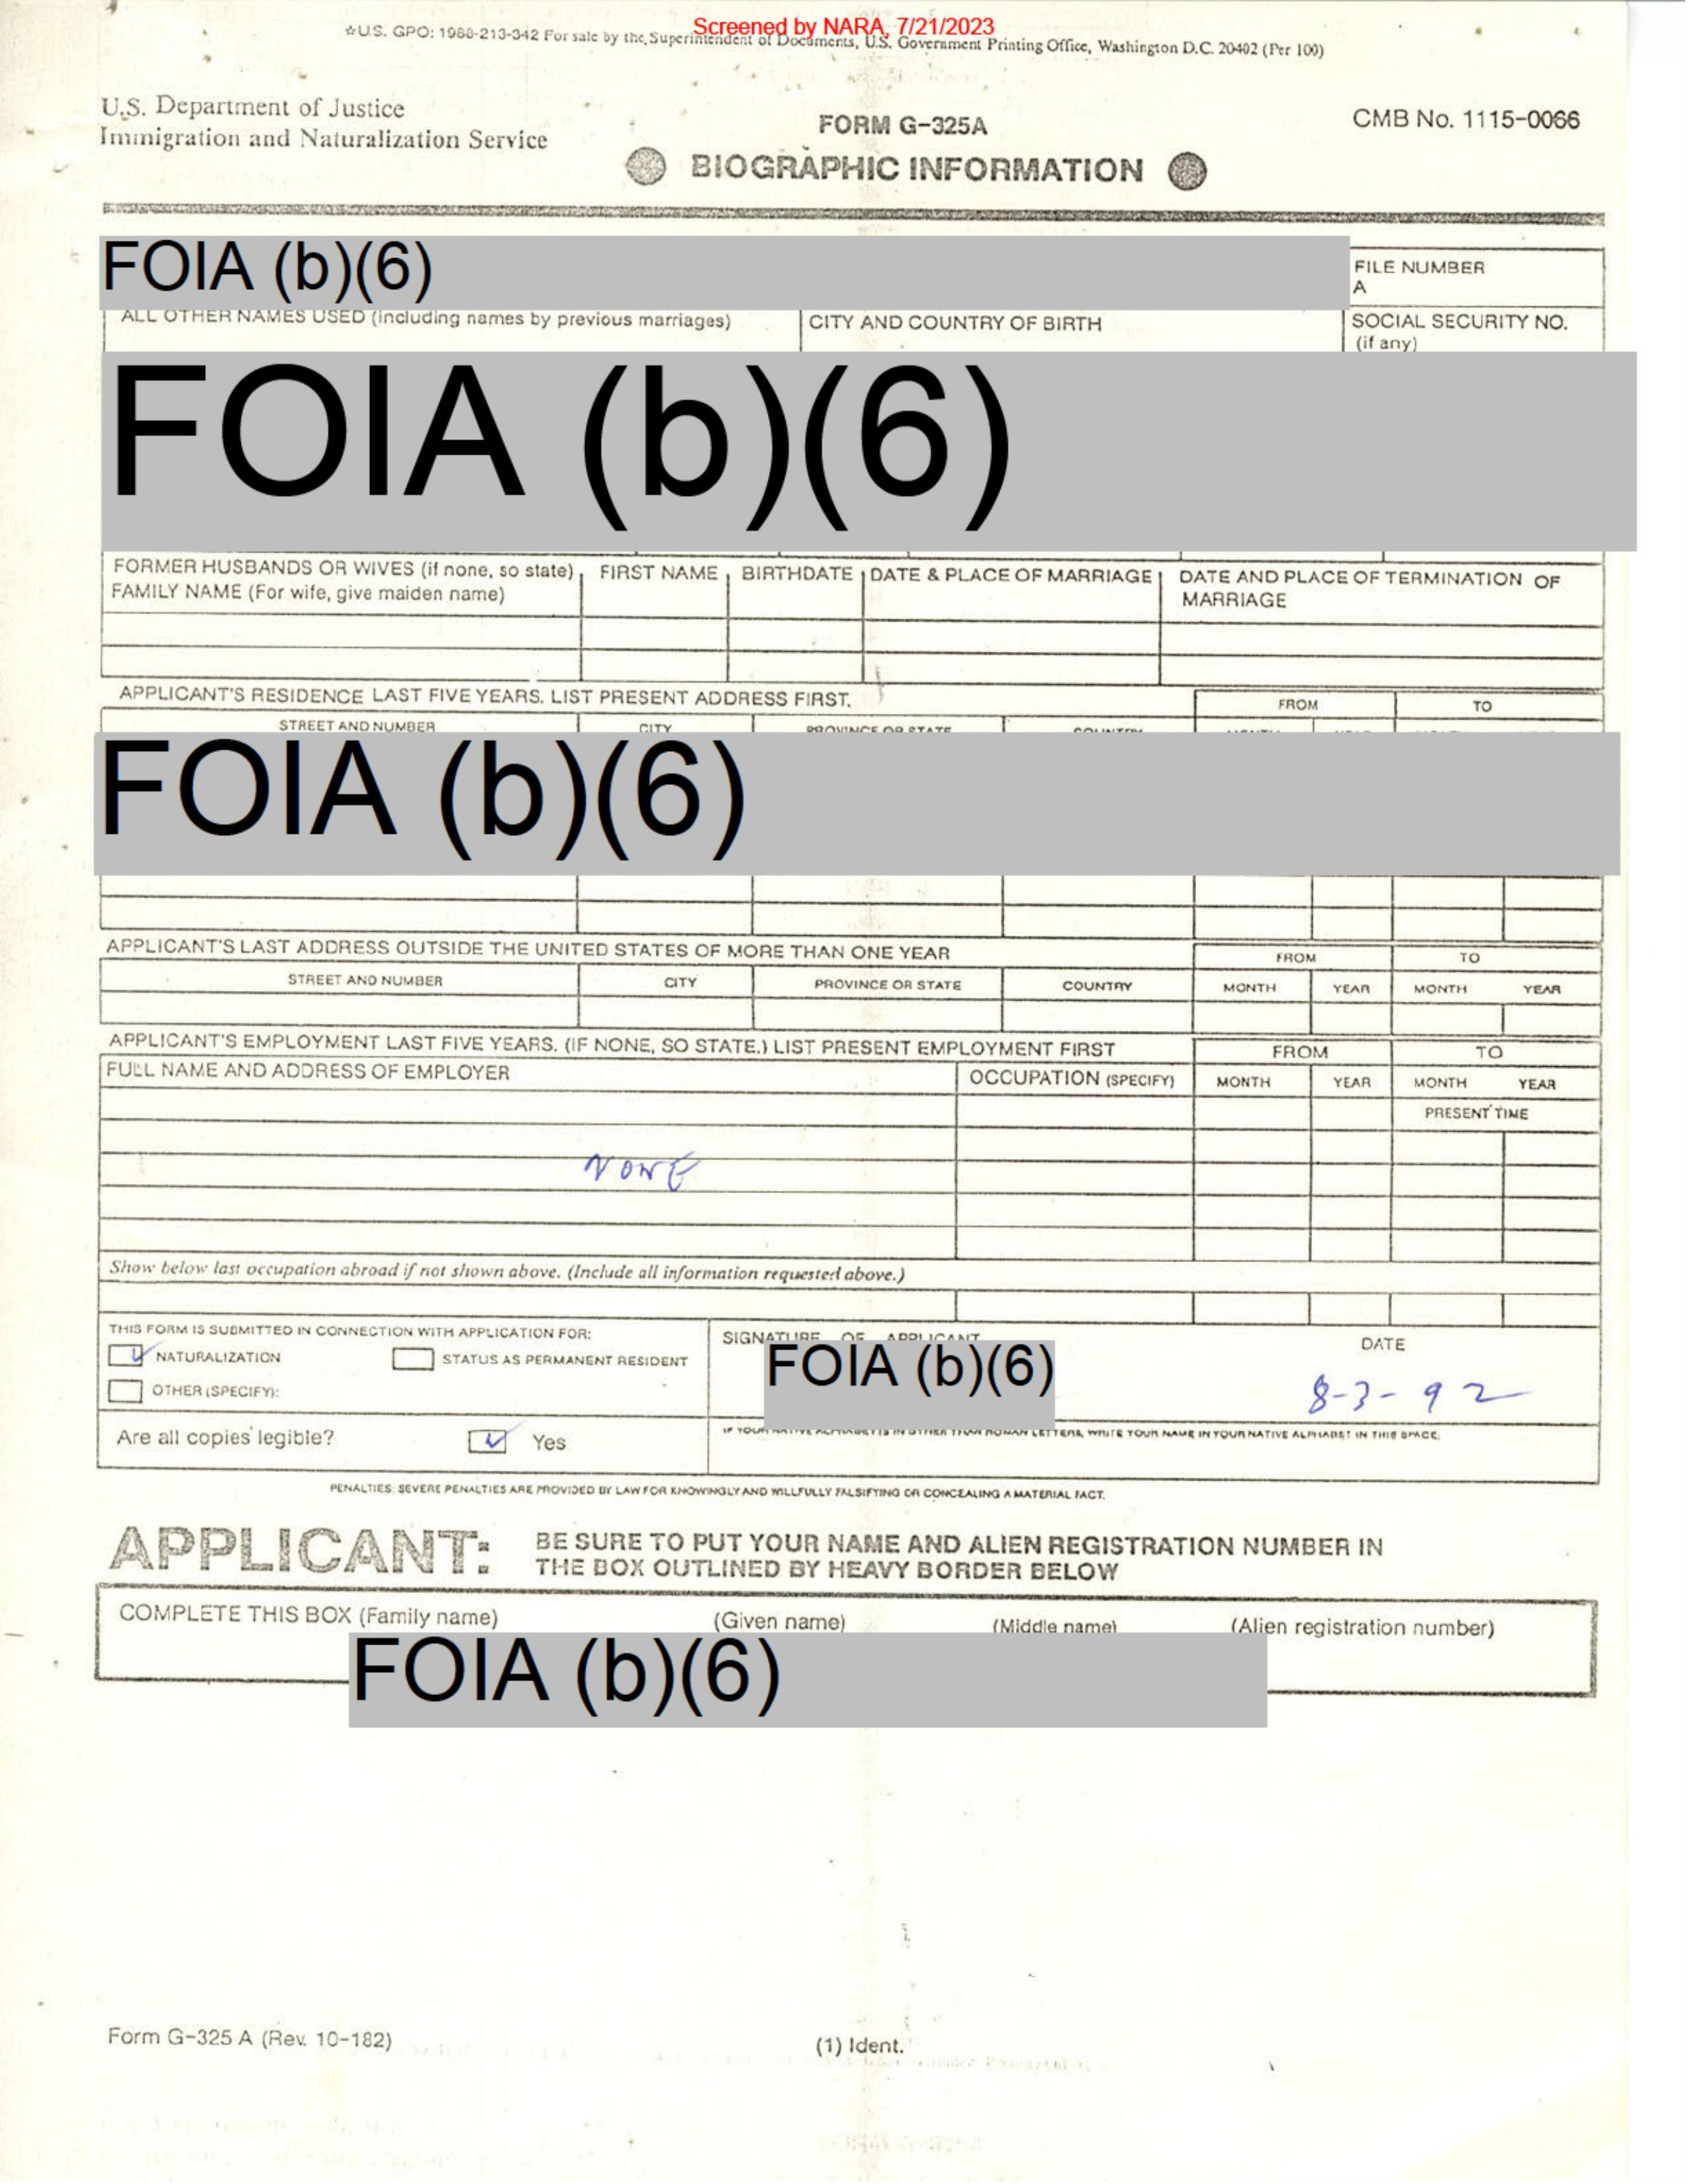 Screened by NARA, 7/21/2023
☆U.S. GPO: 1988-213-342 For sale by the Superintendent of Documents, U.S. Government Printing Office, Washington D.C. 20402 (Per 100)
U.S. Department of Justice
Immigration and Naturalization Service
FORM G-325A
BIOGRAPHIC INFORMATION
CMB No. 1115-0066
FOIA (b)(6)
FILE NUMBER
A
ALL OTHER NAMES USED (including names by previous marriages)
CITY AND COUNTRY OF BIRTH
SOCIAL SECURITY NO.
(if any)
FOIA (b)(6)
FORMER HUSBANDS OR WIVES (if none, so state)
FAMILY NAME (For wife, give maiden name)
FIRST NAME
BIRTHDATE
DATE & PLACE OF MARRIAGE
DATE AND PLACE OF TERMINATION OF
MARRIAGE
APPLICANT'S RESIDENCE LAST FIVE YEARS. LIST PRESENT ADDRESS FIRST.
FROM
TO
STREET AND NUMBER
CITY
PROVINCE OR STATE
COUNTRY
FOIA (b)(6)
APPLICANT'S LAST ADDRESS OUTSIDE THE UNITED STATES OF MORE THAN ONE YEAR
FROM
TO
STREET AND NUMBER
CITY
PROVINCE OR STATE
COUNTRY
MONTH
YEAR
MONTH
YEAR
APPLICANT'S EMPLOYMENT LAST FIVE YEARS. (IF NONE, SO STATE.) LIST PRESENT EMPLOYMENT FIRST
FROM
TO
FULL NAME AND ADDRESS OF EMPLOYER
OCCUPATION (SPECIFY)
MONTH
YEAR
MONTH
YEAR
PRESENT TIME
NONE
Show below last occupation abroad if not shown above. (Include all information requested above.)
THIS FORM IS SUBMITTED IN CONNECTION WITH APPLICATION FOR:
NATURALIZATION
STATUS AS PERMANENT RESIDENT
OTHER (SPECIFY):
SIGNATURE OF APPLICANT
FOIA (b)(6)
DATE
8-3-92
Are all copies legible?
Yes
IF YOUR NATIVE ALPHABET IS IN OTHER THAN ROMAN LETTERS, WRITE YOUR NAME IN YOUR NATIVE ALPHABET IN THIS SPACE:
PENALTIES: SEVERE PENALTIES ARE PROVIDED BY LAW FOR KNOWINGLY AND WILLFULLY FALSIFYING OR CONCEALING A MATERIAL FACT.
APPLICANT:
BE SURE TO PUT YOUR NAME AND ALIEN REGISTRATION NUMBER IN
THE BOX OUTLINED BY HEAVY BORDER BELOW
COMPLETE THIS BOX (Family name)
(Given name)
(Middle name)
(Alien registration number)
FOIA (b)(6)
Form G-325 A (Rev. 10-182)
(1) Ident.